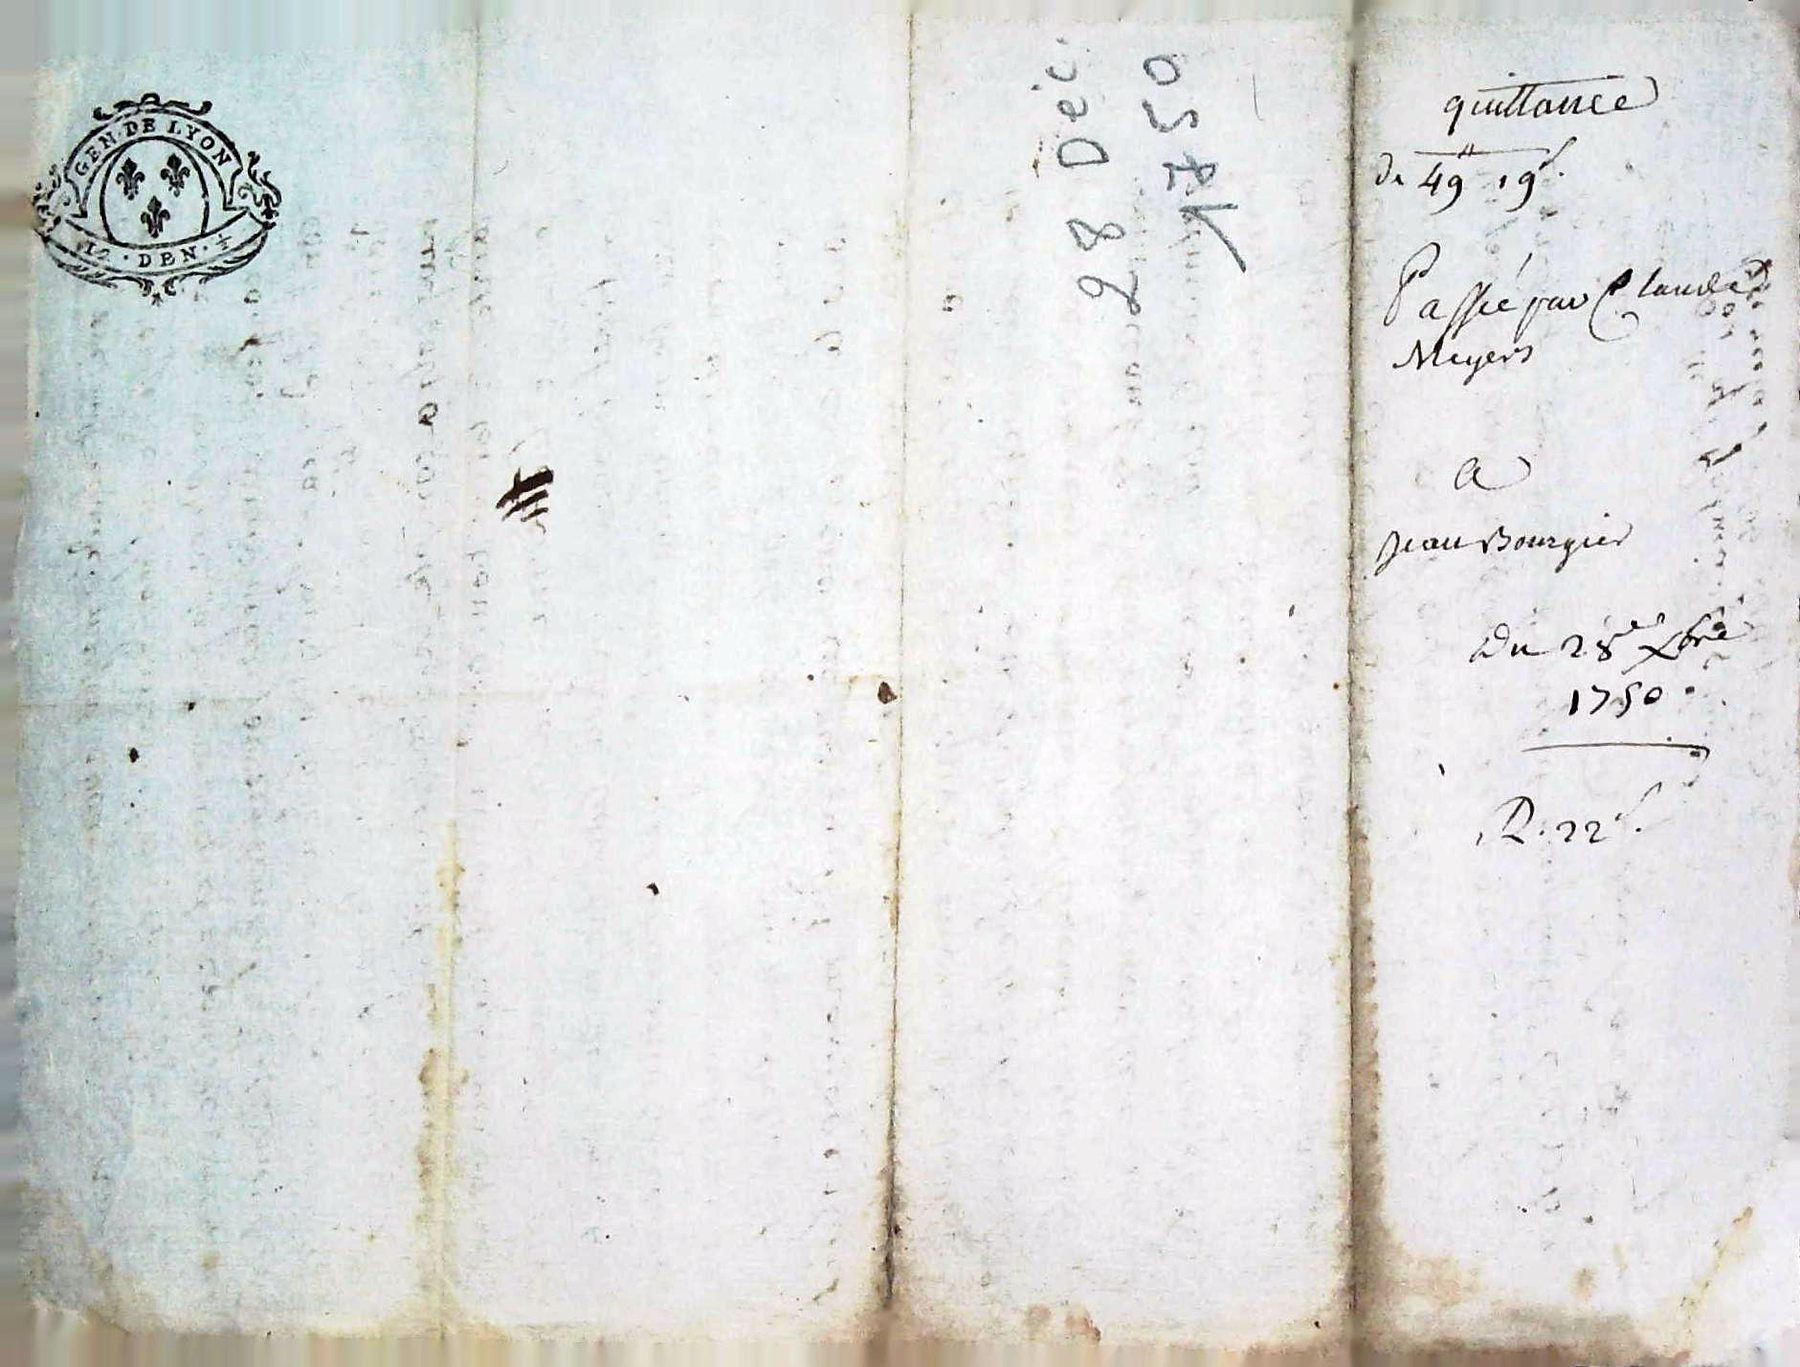 GEN. DE LYON
DEN.
28 Déc.
1750
quittance
de 49ᵗᵗ 19ˢ.
Passée par Claude
Meyers
a
Jean Bourgier
Du 28ᵉ Xbre
1750
R. 22ˢ.